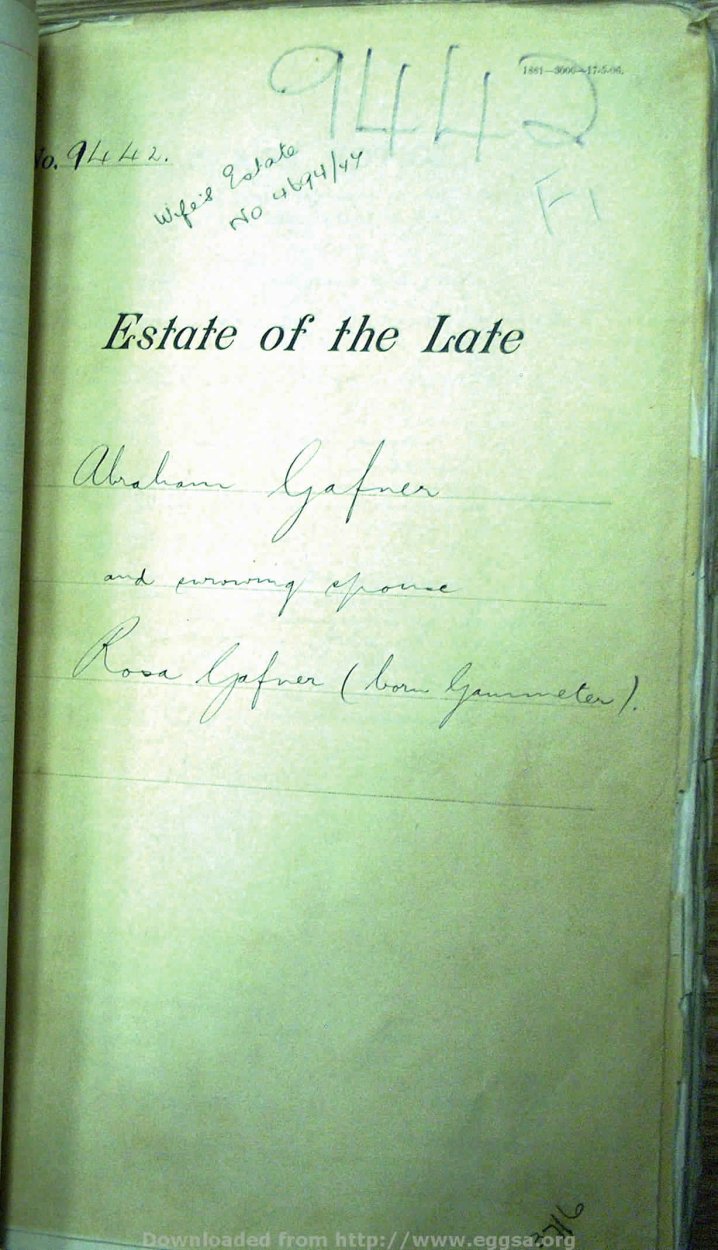 1881—3000—17-5-06.
9442
No. 9442.
Wife's Estate
No 4694/44
F1
Estate of the Late
Abraham Gafner
and surviving spouse
Rosa Gafner (born Gammeter).
Downloaded from http://www.eggsa.org